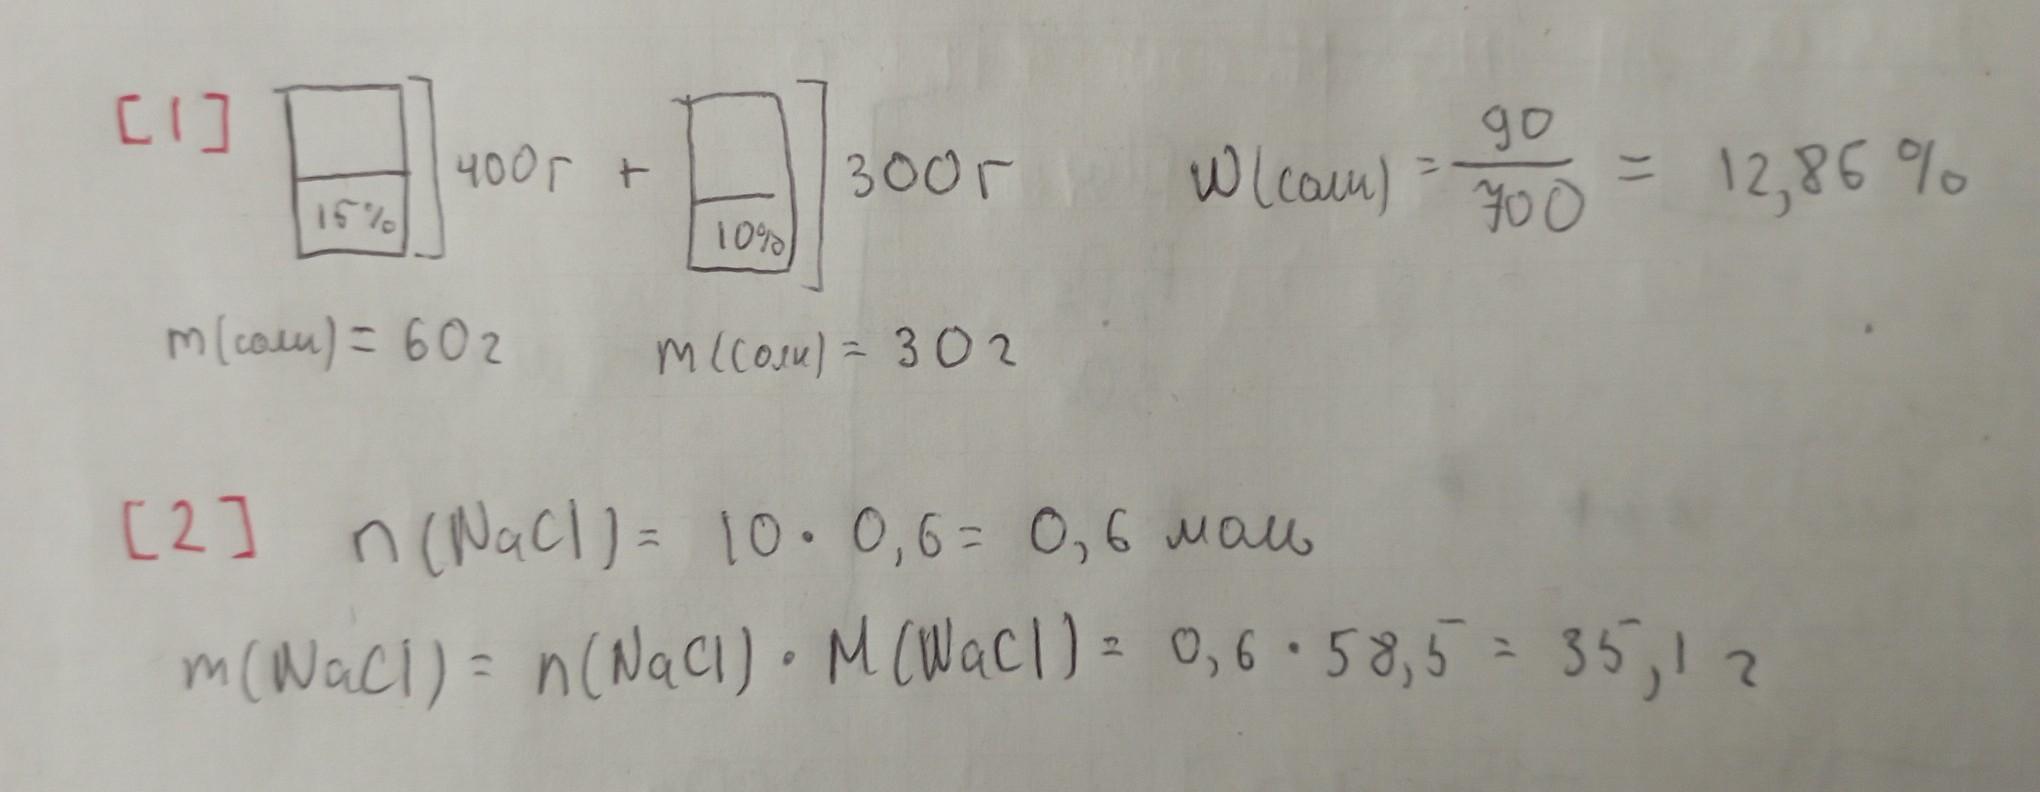 [1] 15% 400г + 10% 300г W(соли) = 90/700 = 12,86 %
m(соли) = 60г m(соли) = 30г
[2] n(NaCl) = 10 · 0,6 = 0,6 моль
m(NaCl) = n(NaCl) · M(NaCl) = 0,6 · 58,5 = 35,1 г